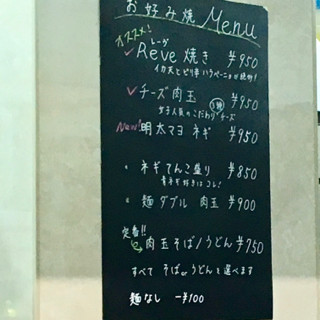 お好み焼 Menu
オススメ!
レーヴ
✓Reve 焼き ¥950
イカ天とピリ辛ハラペーニョが絶妙!
✓チーズ肉玉 ¥950
3種
女子人気のこだわりチーズ
New! 明太マヨ ネギ ¥950
• ネギてんこ盛り ¥850
青ネギ好きはコレ!
• 麺 ダブル 肉玉 ¥900
定番!!
肉玉そば/うどん ¥750
すべて そばorうどんと選べます
麺なし -¥100